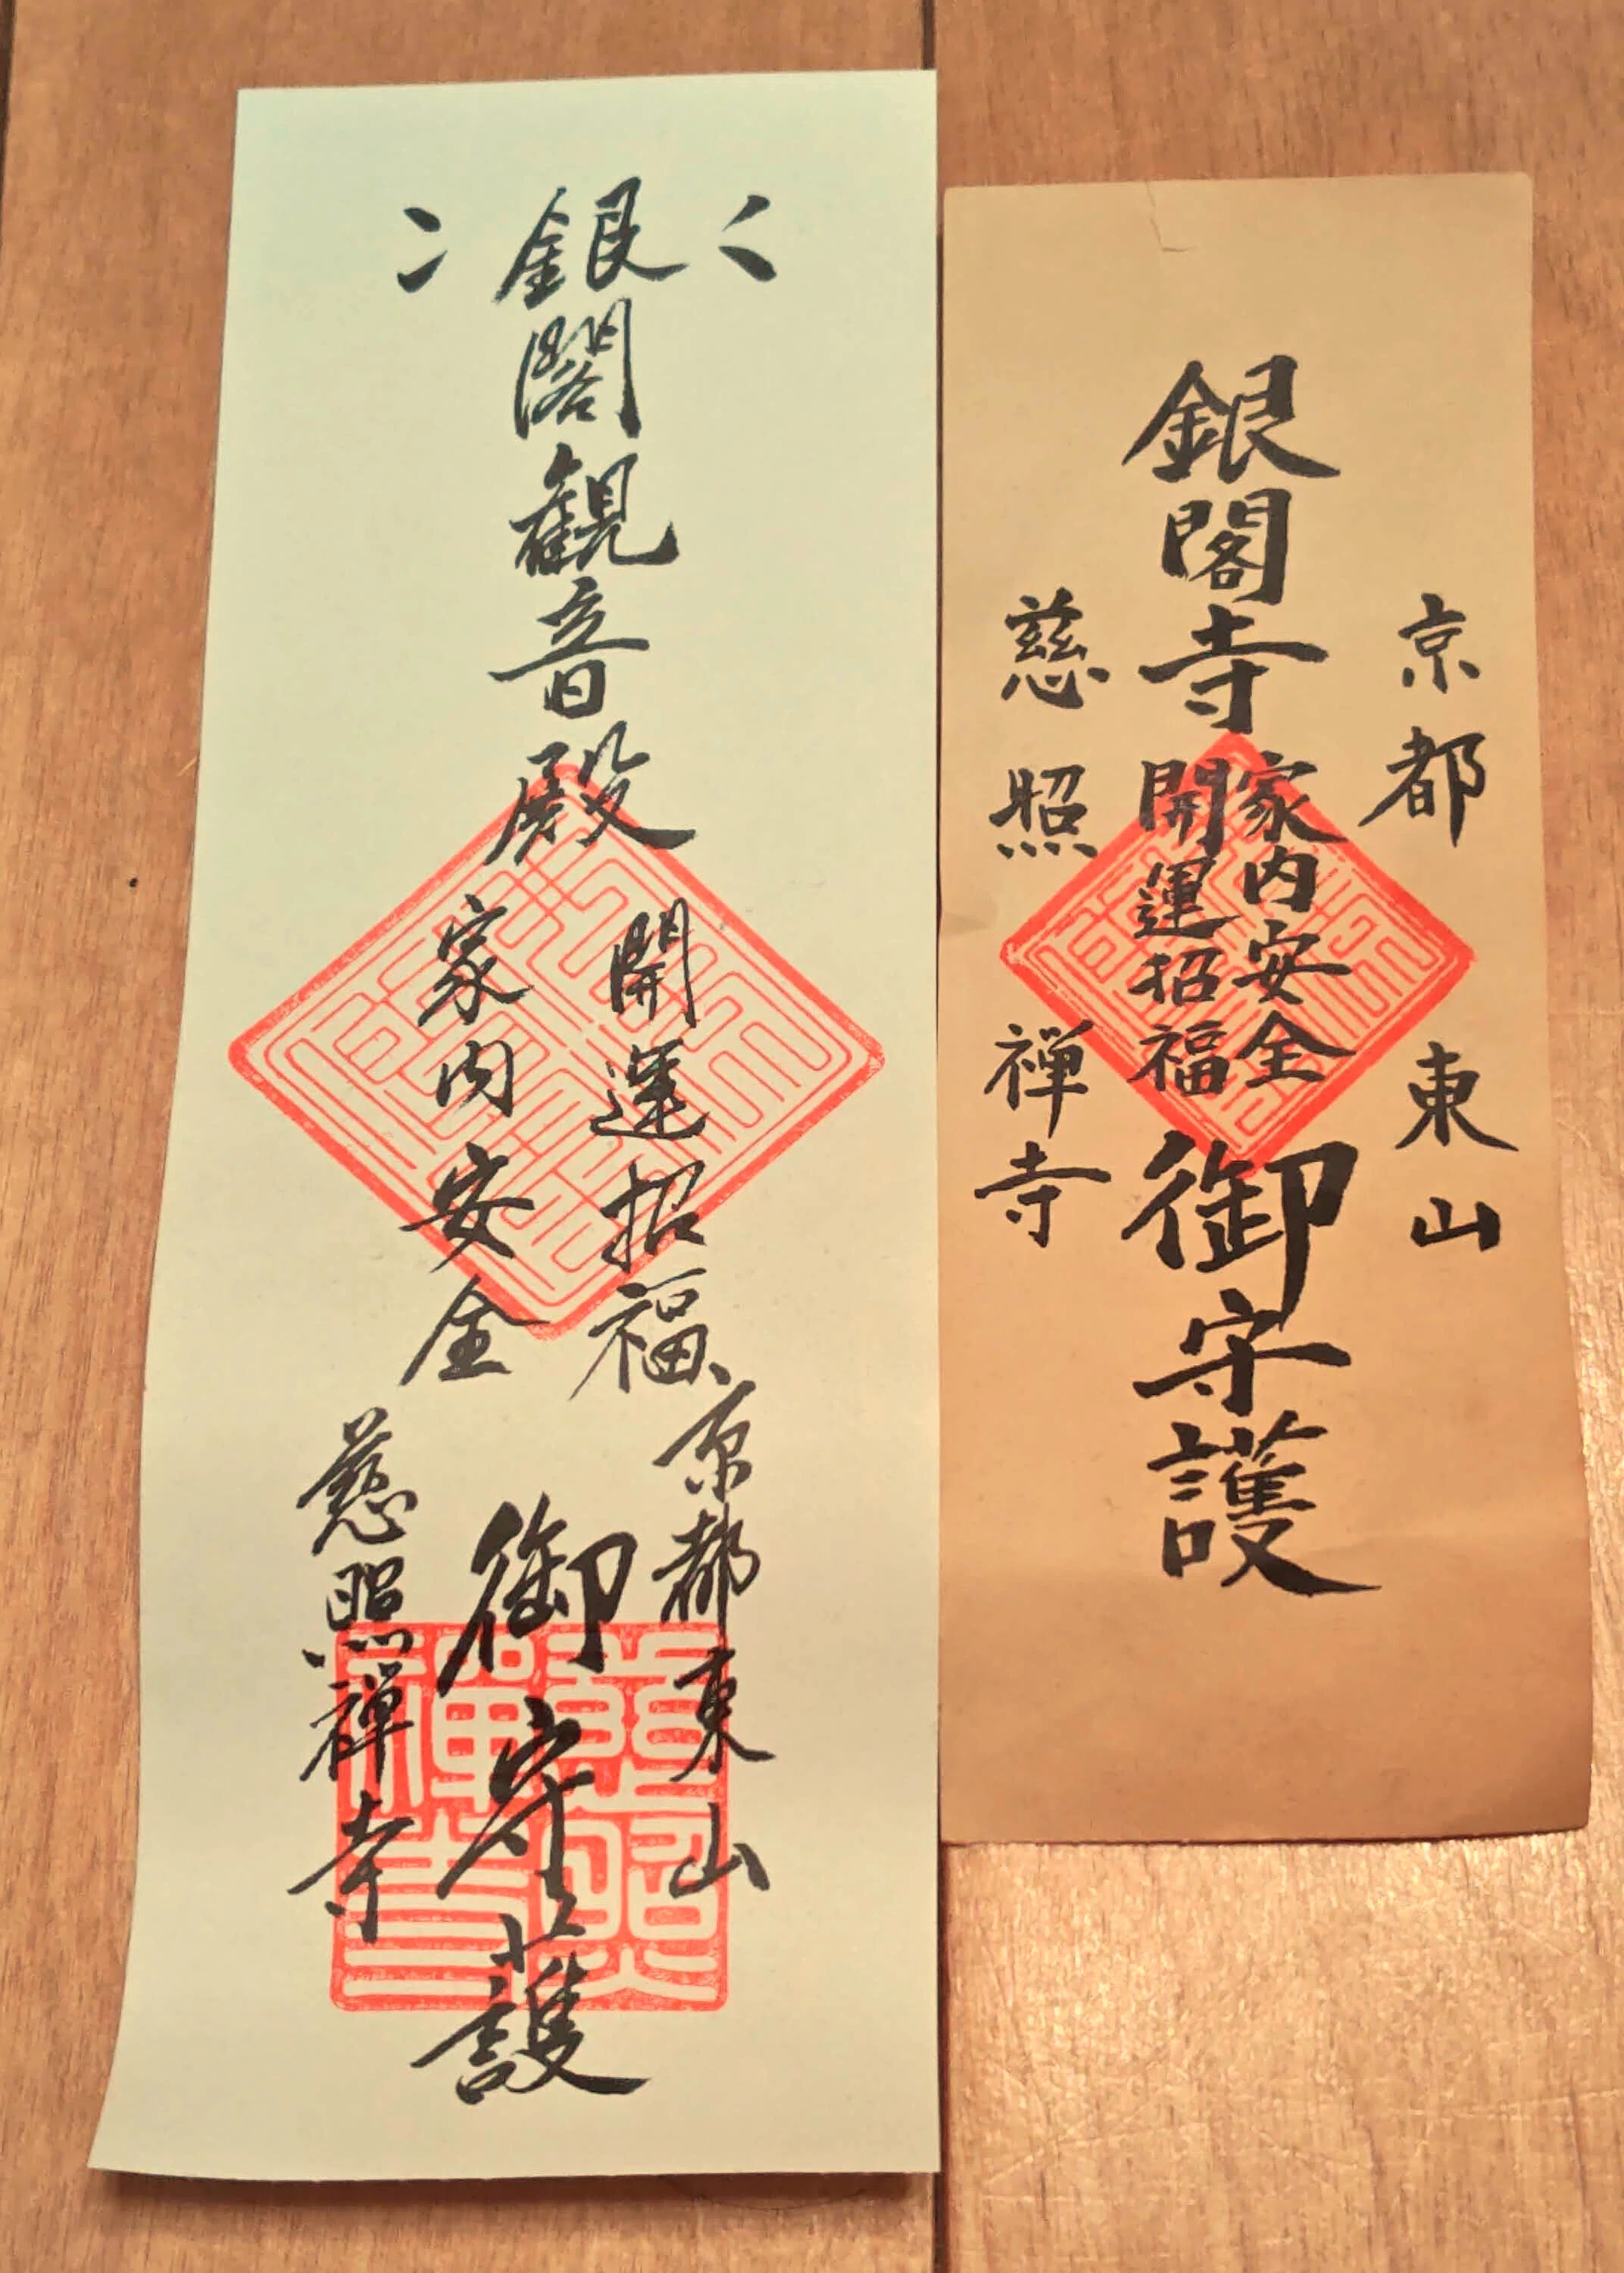 銀閣観音殿
開運招福
家内安全
京都東山
御守護
慈照禅寺
京都東山
銀閣寺
家内安全
開運招福
御守護
慈照禅寺